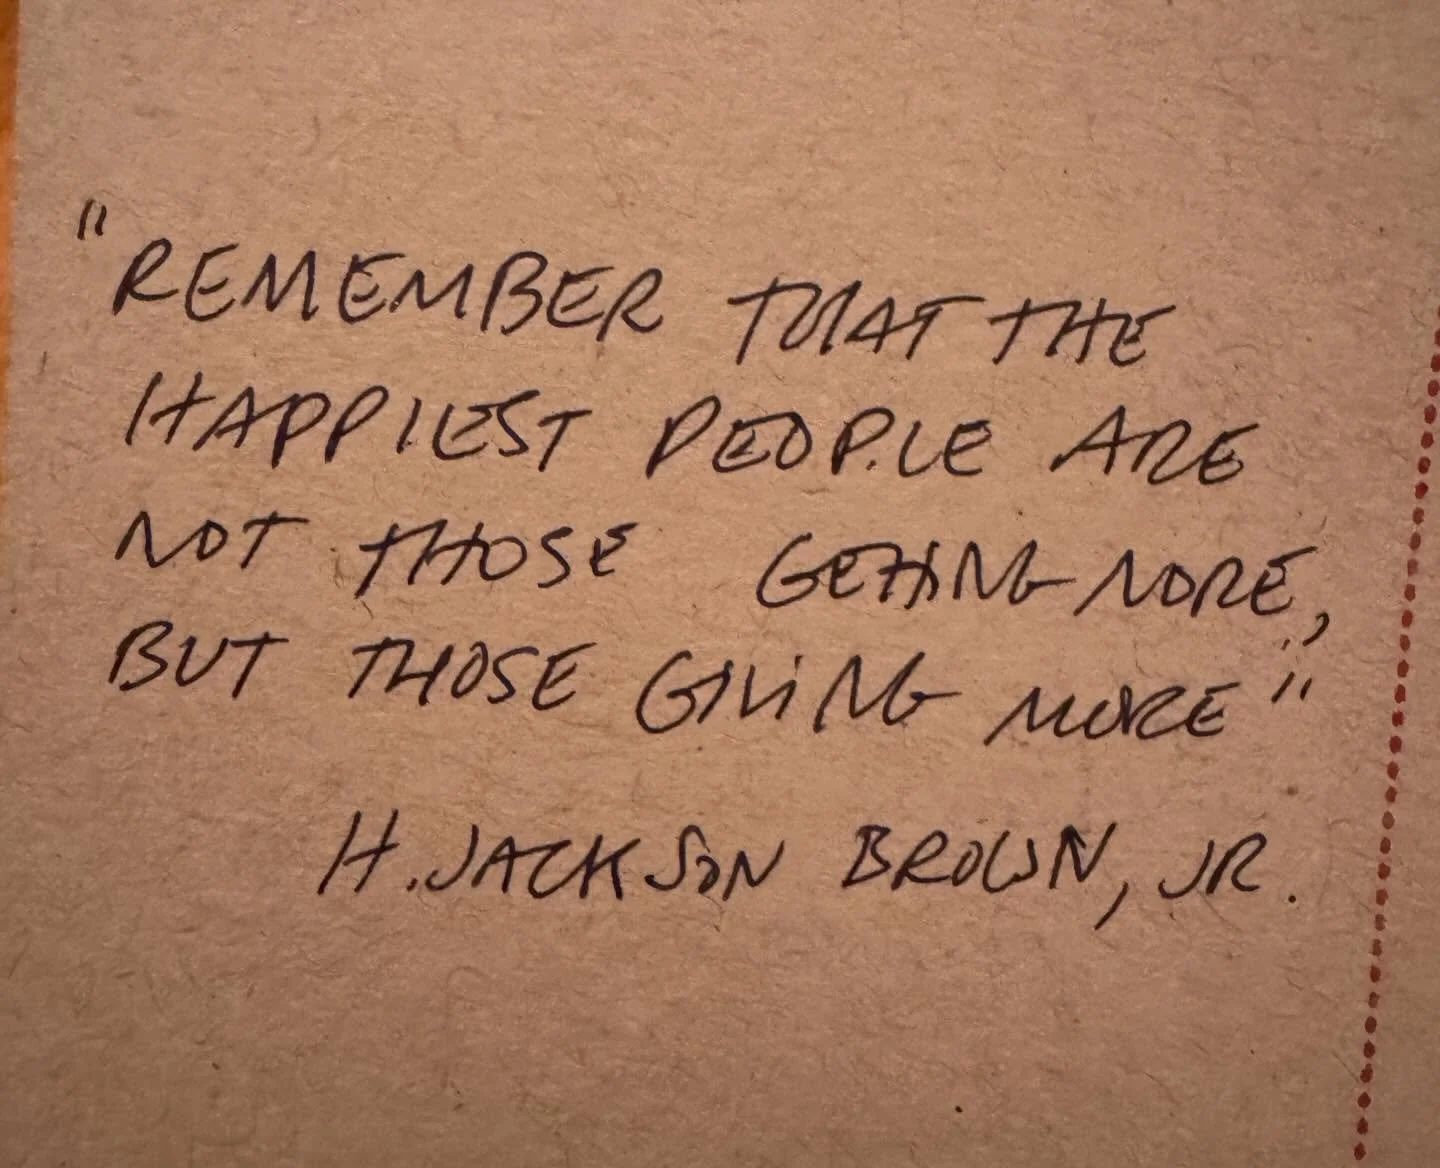 "REMEMBER THAT THE
HAPPIEST PEOPLE ARE
NOT THOSE GETTING MORE,
BUT THOSE GIVING MORE"
H. JACKSON BROWN, JR.